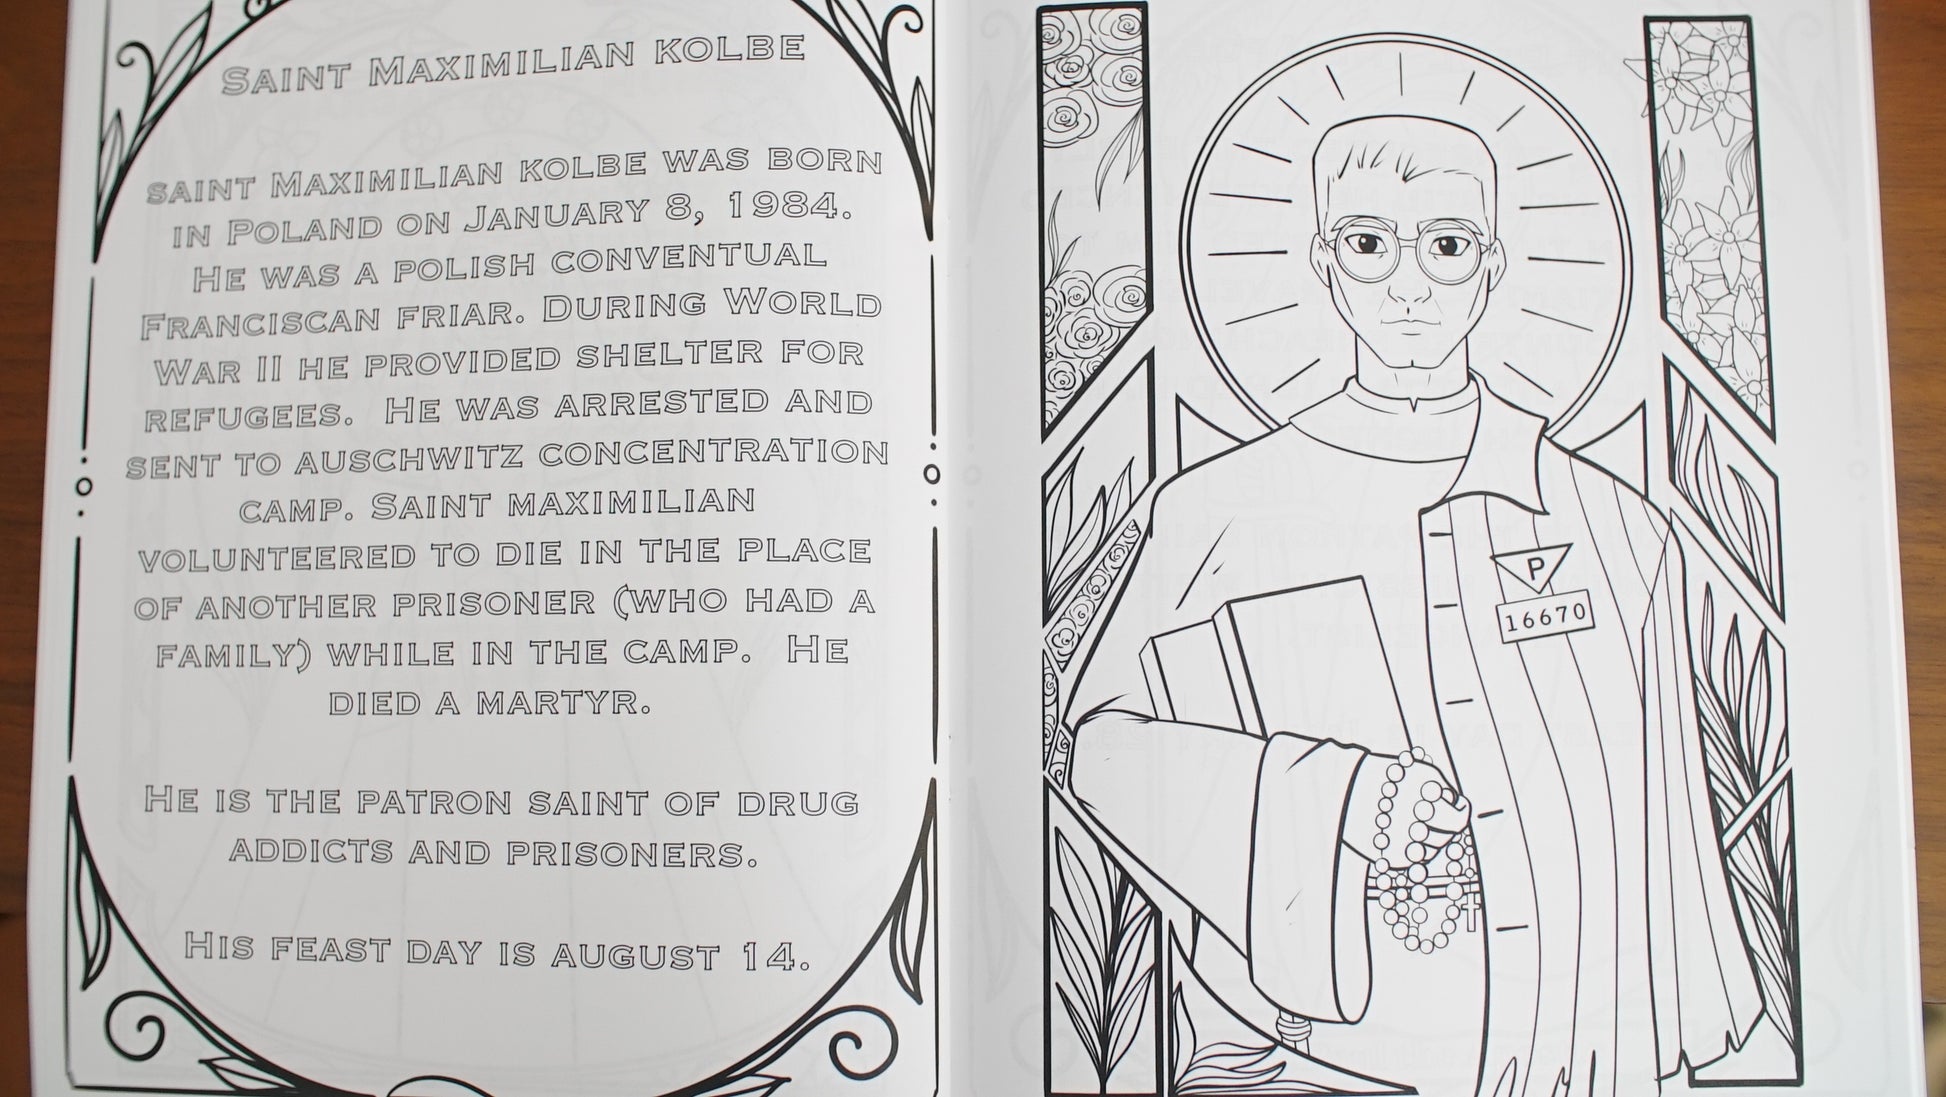 SAINT MAXIMILIAN KOLBE
SAINT MAXIMILIAN KOLBE WAS BORN
IN POLAND ON JANUARY 8, 1984.
HE WAS A POLISH CONVENTUAL
FRANCISCAN FRIAR. DURING WORLD
WAR II HE PROVIDED SHELTER FOR
REFUGEES. HE WAS ARRESTED AND
SENT TO AUSCHWITZ CONCENTRATION
CAMP. SAINT MAXIMILIAN
VOLUNTEERED TO DIE IN THE PLACE
OF ANOTHER PRISONER (WHO HAD A
FAMILY) WHILE IN THE CAMP. HE
DIED A MARTYR.
HE IS THE PATRON SAINT OF DRUG
ADDICTS AND PRISONERS.
HIS FEAST DAY IS AUGUST 14.
P
16670